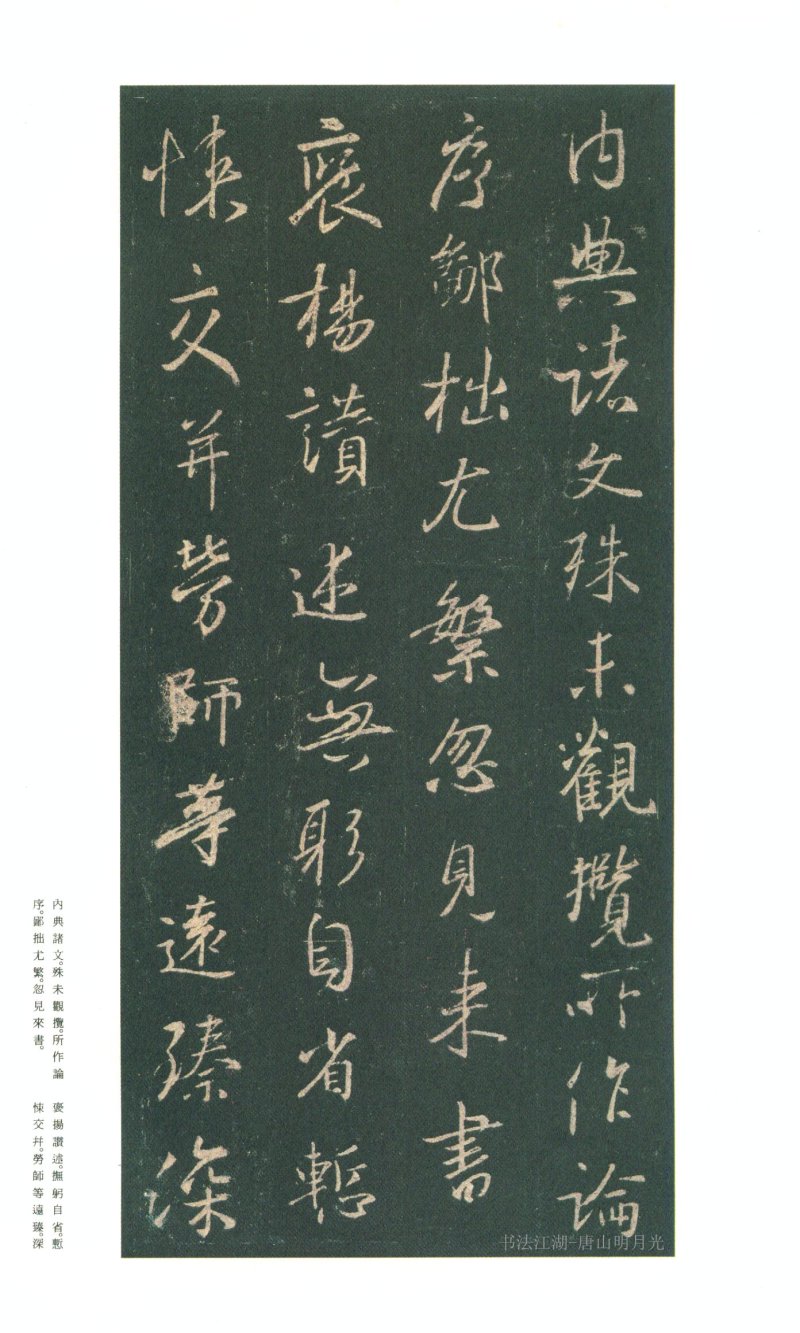 内典諸文殊未觀攬所作論
序鄙拙尤繁忽見来書
褒楊讃述無躬自省慙
悚交并勞師等遠臻深
内典諸文。殊未觀攬。所作論
序。鄙拙尤繁。忽見來書。
褒揚讚述。撫躬自省。慙
悚交并。勞師等遠臻。深
书法江湖-唐山明月光